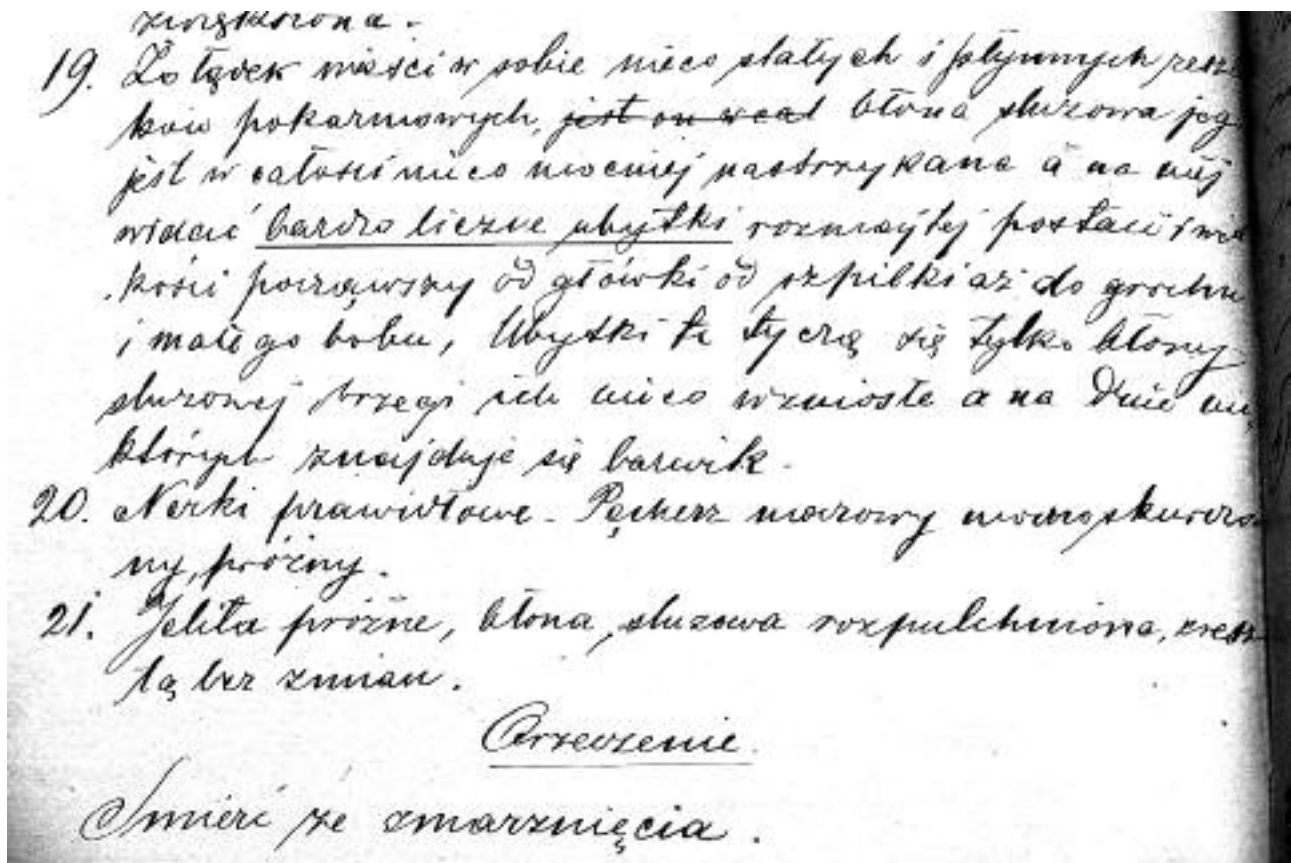 zwiększona.
19. Żołądek mieści w sobie nieco stałych i płynnych reszt
ków pokarmowych, jest on wcal błona śluzowa jeg
jest w całości nieco mocniej nastrzykana a na niej
widać bardzo liczne ubytki rozmaitej postaci i wiel
kości począwszy od główki od szpilki aż do grochu
i małego bobu, Ubytki te tyczą się tylko błony
śluzowej brzegi ich nieco wzniosłe a na dnie nie
których znajduje się barwik.
20. Nerki prawidłowe. Pęcherz moczowy mocno skurczo
ny, próżny.
21. Jelita próżne, błona śluzowa rozpulchniona, zresz
tą bez zmian.
Orzeczenie.
Śmierć ze zmarznięcia.